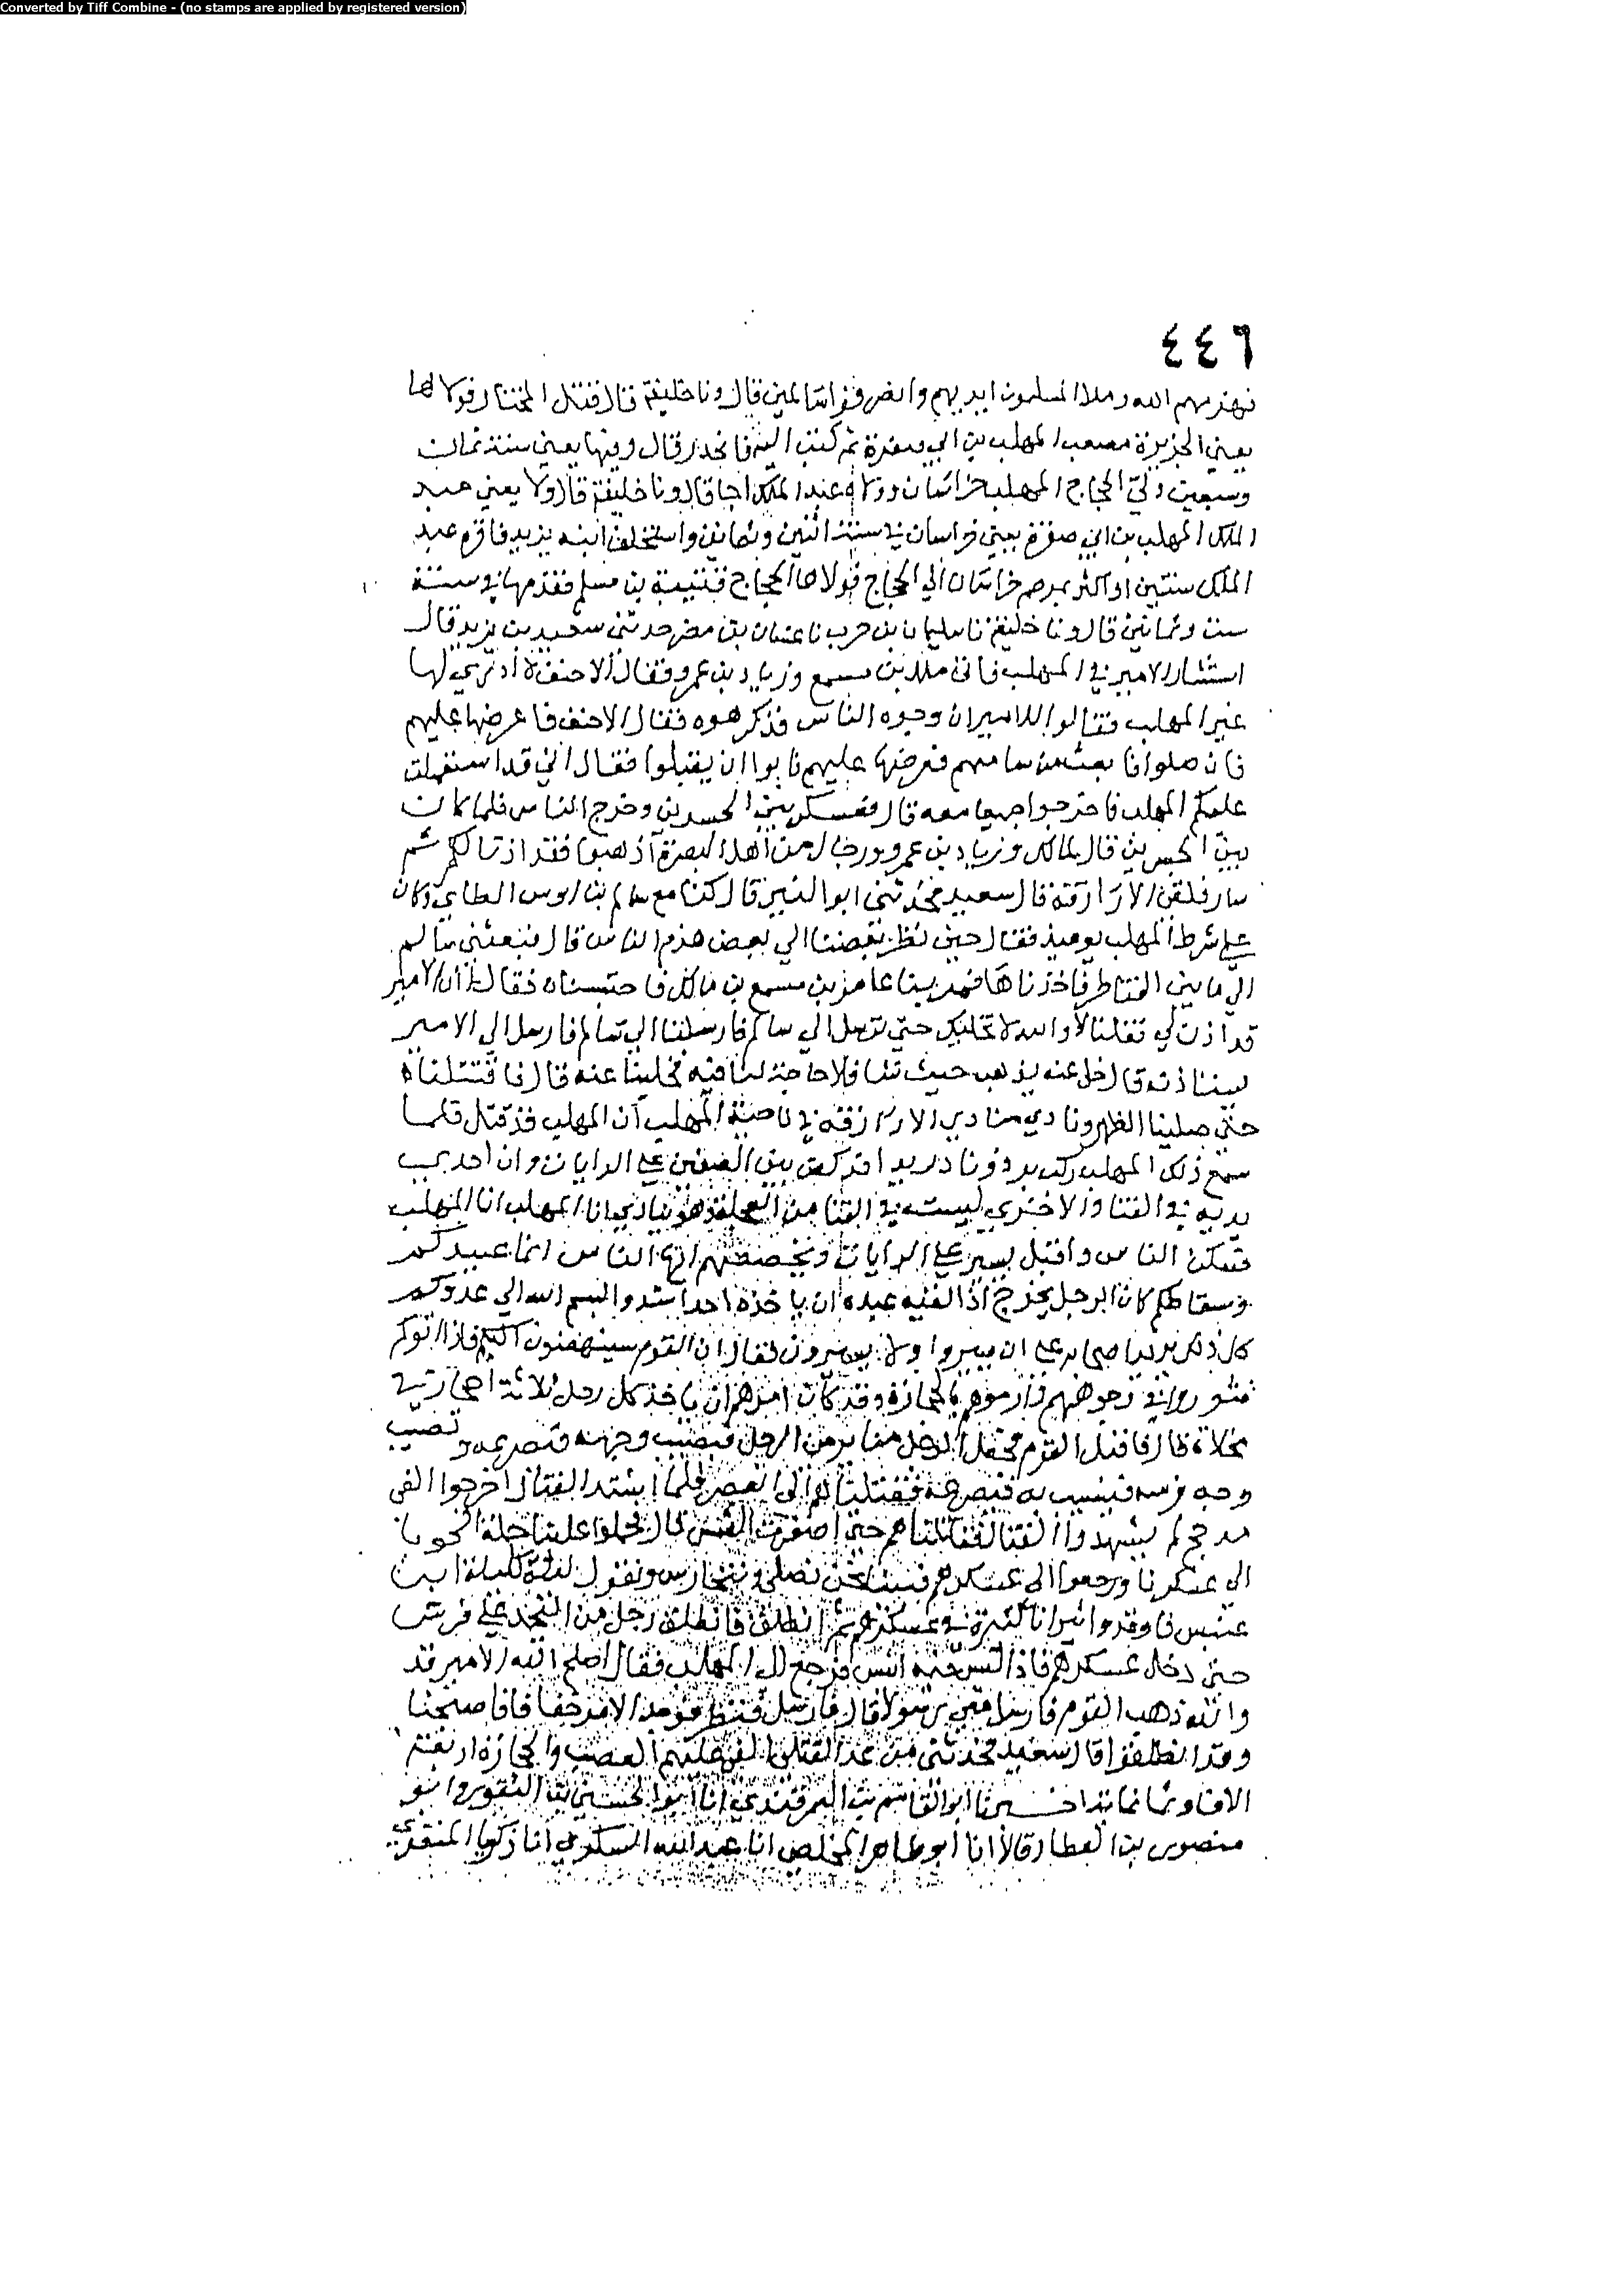 Converted by Tiff Combine - (no stamps are applied by registered version)
٤٤٦
فهزمهم الله وملا المسلمون ايديهم وانصرفوا سالمين قال ونا خليفة قال فقتل المختار فولاها
يعني الجزيرة مصعب المهلب بن ابي صفرة ثم كتب اليه فانحدر قال وفيها يعني سنة ثمان
وسبعين ولي الحجاج المهلب خراسان وولاه عبد الملك قال ونا خليفة قال ولا يعني عبد
الملك المهلب بن ابي صفرة يعني خراسان في سنة اثنين وثمانين واستخلف ابنه يزيد فاقره عبد
الملك سنتين او اكثر خراسان الي الحجاج فولاها الحجاج قتيبة بن مسلم فقدمها في سنة
ست وثمانين قال ونا خليفة نا سليمان بن حرب نا غسان بن مضر حدثني سعيد بن يزيد قال
استشار الامير في المهلب فاتى مالك بن مسمع وزياد بن عمرو فقال الاحنف لا اري لها
غير المهلب فقالوا للامير ان وجوه الناس قد كرهوه فقال الاحنف فاعرضها عليهم
فان فعرضها عليهم فابوا ان يقبلوا فقال اني قد استعملت
عليكم المهلب فاخرجوا جميعا معه قال فعسكر بين الجسرين وخرج الناس فلما كان
بين الجسرين قال لمالك وزياد بن عمرو ورجال من اهل البصرة اذهبوا فقد اذنا لكم ثم
سار فلقي الازارقة قال سعيد فحدثني ابو النير قال كنا مع سالم بن اوس الطاي وكان
علي شرط المهلب يوميذ فقال حين نظر بعضنا الي بعض هزم الناس قال فبعثني سالم
الي ما بين القناطر فاخذناها فمر بنا عامر بن مسمع بن مالك فاحتبسناه فقال ان الامير
قد اذن لي فقلنا لا والله لا نخليك حتى ترسل الي سالم فارسلنا الي سالم فارسل الي الامير
يستاذنه قال خل عنه يذهب حيث شا فلا حاجة لنا فيه فخلينا عنه قال فاقتتلنا
حتى صلينا الظهر ونادي منادي الازارقة في ناحية المهلب ان المهلب قد قتل فلما
سمع ذلك المهلب ركب برذونا بين الصفين علي الرايات وان احد
يديه في القبا والاخري ليست في القبا من العجلة وهو ينادي انا المهلب انا المهلب
فسكن الناس واقبل يسير علي الرايات ويحضضهم ايها الناس انما عبيدكم
وسقاطكم كان الرجل يخرج اذا لقيه عبده ان ياخذه احدا شدوا بسم الله الي عدوكم
كل ذلك يريد اصحابه علي ان يسيروا ولا يسيرون فقال ان القوم سينهضون اليكم فاذا اتوكم
في وجوههم وارموهم بالحجارة وقد كان امرهم ان ياخذ كل رجل ثلاثة احجار في
مخلاة قال فاقبل القوم فجعل الرجل منا يرمي الرجل فيصيب وجهه فيصرعه ويصيب
وجه فرسه به فيصرعه فقتلناهم الي العصر فلما اشتد القتال اخرجوا الفي
مدجج لم يشهدوا القتال فقاتلناهم حتى اصفرت الشمس قال فحملوا علينا حملة الجونا
الي عسكرنا ورجعوا الي عسكرهم فبتنا نحن نصلي ونتحارس ونقول ابن
عنبس فاوقدوا نيرانا كثيرة في عسكرهم ثم انطلق فانطلق رجل من اليحمد علي فرس
حتى دخل عسكرهم فاذا ليس فيه انس فرجع الي المهلب فقال اصلح الله الامير قد
والله ذهب القوم فارسل معي رسولا قال فارسل فنظر فوجد الامر حقا فاصبحنا
وقد انطلقوا قال سعيد فحدثني من عد القتلى القى عليهم القصب والحجارة اربعة
الاف وثمانماية اخبرنا ابو القاسم بن السمرقندي انا ابو الحسين بن النقور وابو
منصور بن العطار قالا انا ابو طاهر المخلص انا عبيد الله السكري انا زكريا المنقري